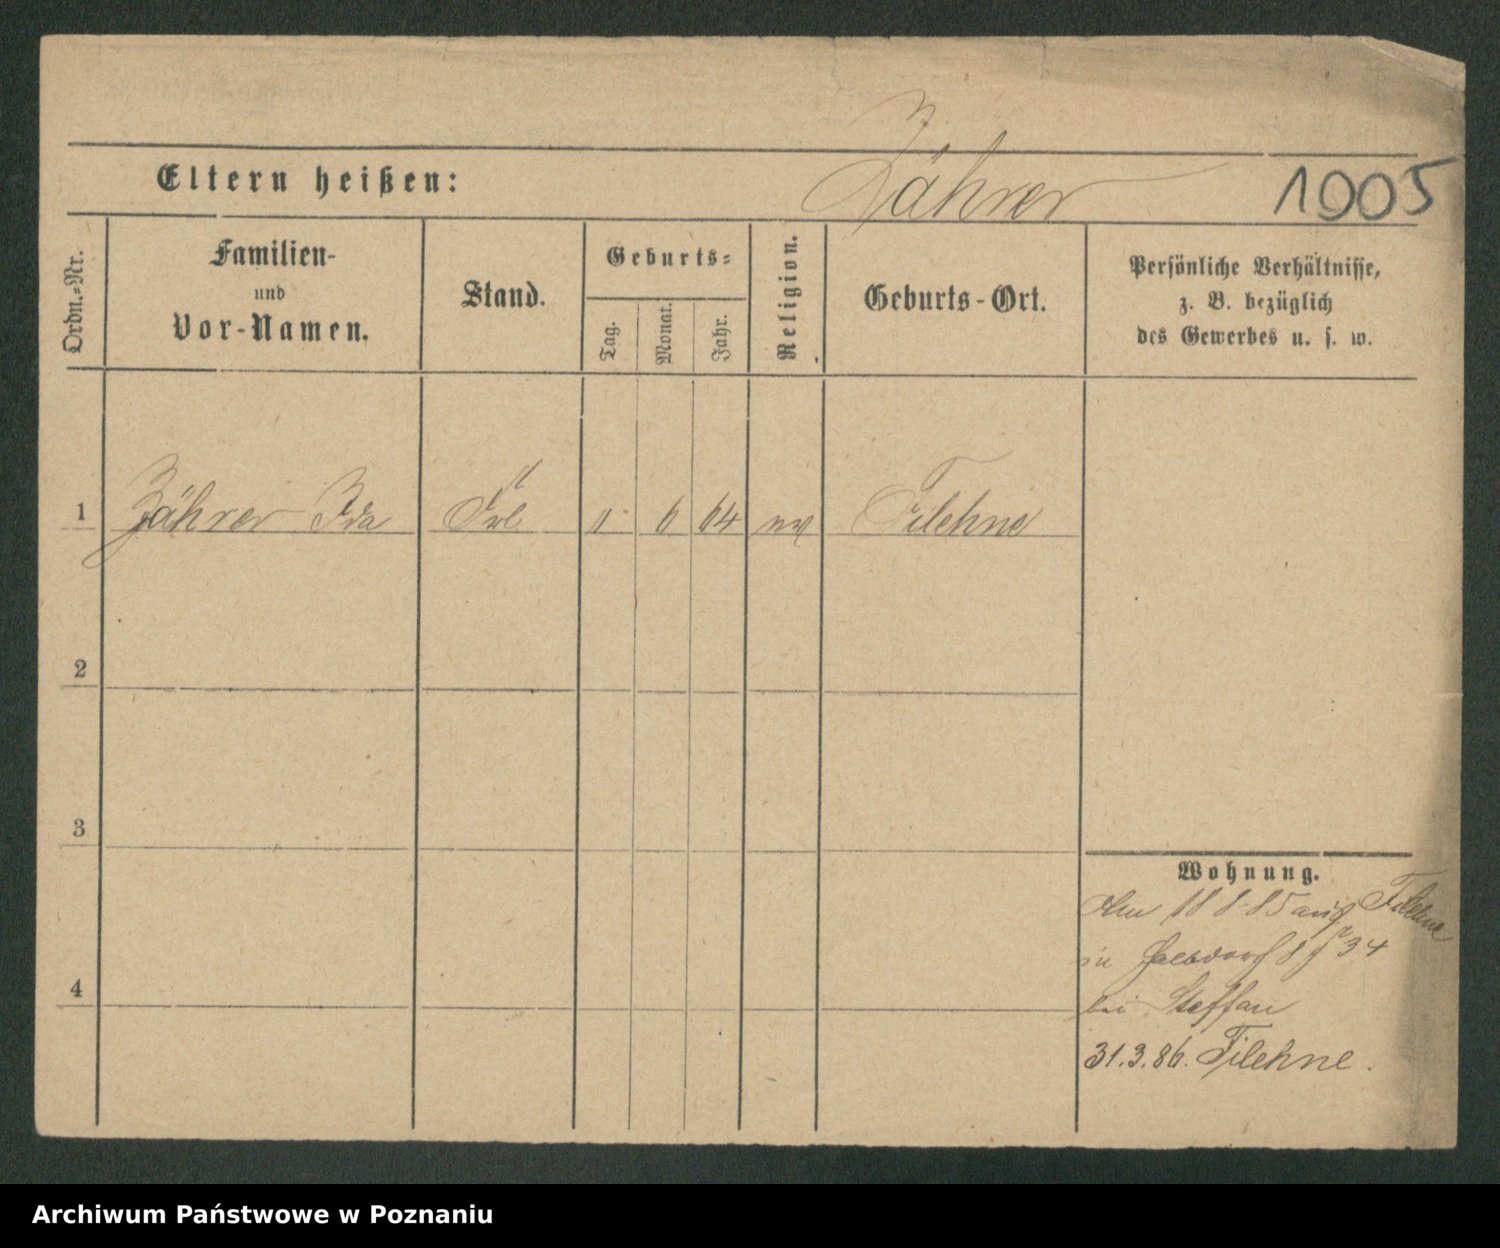 Zährer
Eltern heißen:
1905
Ordn.-Nr.
Familien-
und
Vor-Namen.
Stand.
Geburts-
Tag.
Monat.
Jahr.
Religion.
Geburts-Ort.
Persönliche Verhältnisse,
z. B. bezüglich
des Gewerbes u. s. w.
1 Zährer Ida Frl. 6 64 ev Filehne
2
3
4
Wohnung.
Am 18 8 85 aus Filehne
in Halbdorf 34
bei Steffan
31.3.86. Filehne.
Archiwum Państwowe w Poznaniu